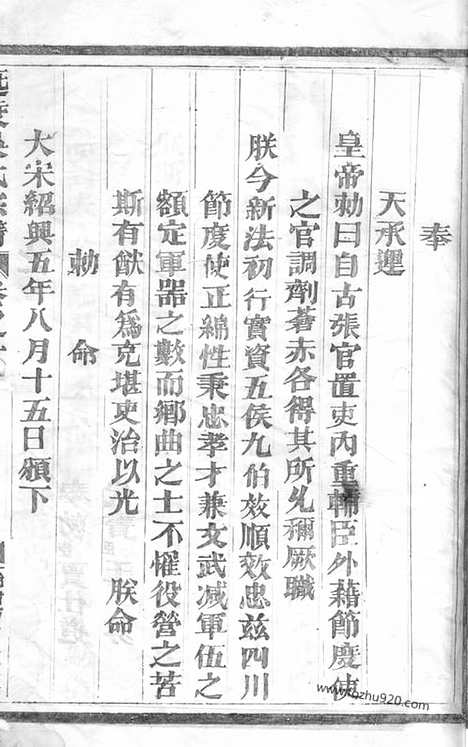 奉
天承運
皇帝勅曰自古張官置吏內重輔臣外藉節度使
之官調劑蒼赤各得其所允稱厥職
朕今新法初行實資五侯九伯效順效忠茲四川
節度使正綿性秉忠孝才兼文武减軍伍之
額定軍器之數而鄉曲之士不懼役營之苦
斯有猷有爲克堪吏治以光 朕命
勅 命
大宋紹興五年八月十五日頒下
www.kozhu920.com